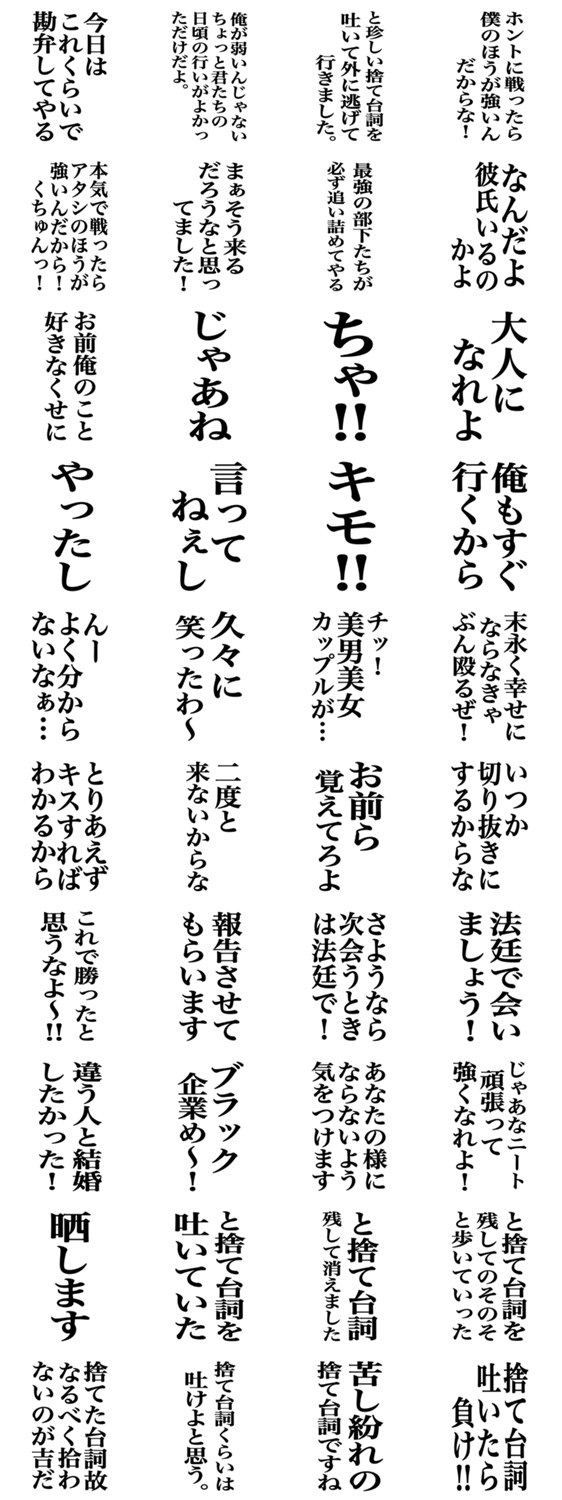 今日は
これくらいで
勘弁してやる
俺が弱いんじゃない
ちょっと君たちの
日頃の行いがよかっ
ただけだよ。
と珍しい捨て台詞を
吐いて外に逃げて
行きました。
ホントに戦ったら
僕のほうが強いん
だからな！
本気で戦ったら
アタシのほうが
強いんだから！
くちゅんっ！
まぁそう来る
だろうなと思っ
てました！
最強の部下たちが
必ず追い詰めてやる
なんだよ
彼氏いるの
かよ
お前俺のこと
好きなくせに
じゃあね
ちゃ!!
大人に
なれよ
やったし
言って
ねぇし
キモ!!
俺もすぐ
行くから
んー
よく分から
ないなぁ…
久々に
笑ったわ〜
チッ！
美男美女
カップルが…
末永く幸せに
ならなきゃ
ぶん殴るぜ！
とりあえず
キスすれば
わかるから
二度と
来ないからな
お前ら
覚えてろよ
いつか
切り抜きに
するからな
これで勝ったと
思うなよ〜!!
報告させて
もらいます
さようなら
次会うとき
は法廷で！
法廷で会い
ましょう！
違う人と結婚
したかった！
ブラック
企業め〜！
あなたの様に
ならないよう
気をつけます
じゃあなニート
頑張って
強くなれよ！
晒します
と捨て台詞を
吐いていた
と捨て台詞
残して消えました
と捨て台詞を
残してのそのそ
と歩いていった
捨てた台詞故
なるべく拾わ
ないのが吉だ
捨て台詞くらいは
吐けよと思う。
苦し紛れの
捨て台詞ですね
捨て台詞
吐いたら
負け!!